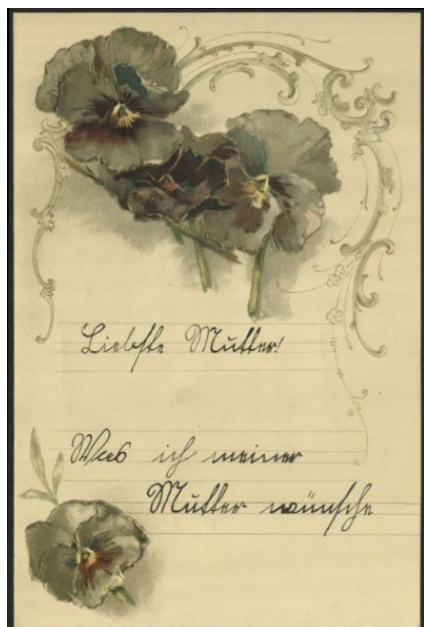 Liebste Mutter!
Was ich meiner
Mutter wünsche